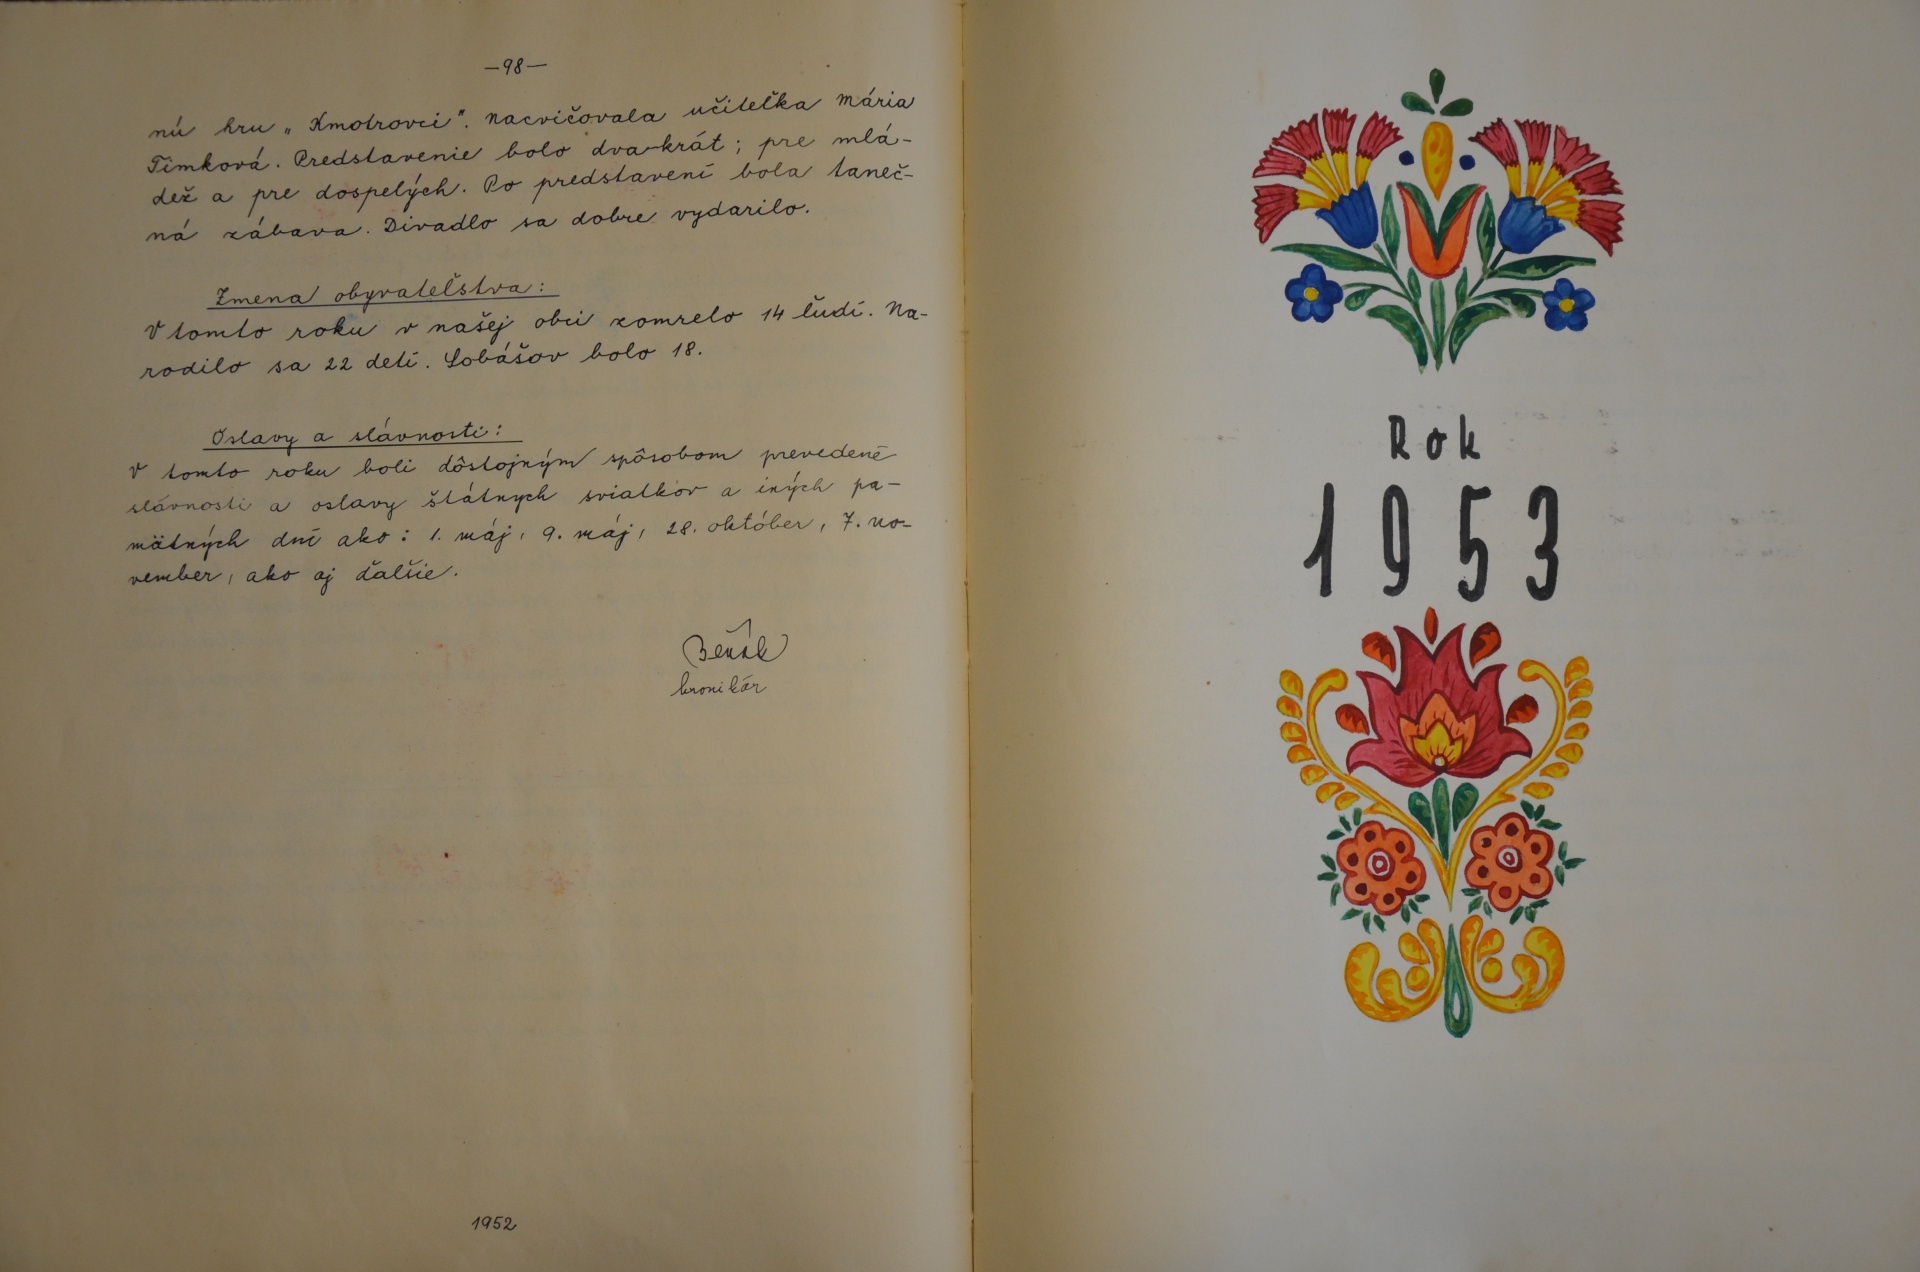 —98—
nú hru „Kmotrovci". Nacvičovala učiteľka Mária
Timková. Predstavenie bolo dva-krát; pre mlá-
dež a pre dospelých. Po predstavení bola taneč-
ná zábava. Divadlo sa dobre vydarilo.
Zmena obyvateľstva:
V tomto roku v našej obci zomrelo 14 ľudí. Na-
rodilo sa 22 detí. Sobášov bolo 18.
Oslavy a slávnosti:
V tomto roku boli dôstojným spôsobom prevedené
slávnosti a oslavy štátnych sviatkov a iných pa-
mätných dní ako: 1. máj, 9. máj, 28. október, 7. no-
vember, ako aj ďalšie.
kronikár
1952
Rok
1953